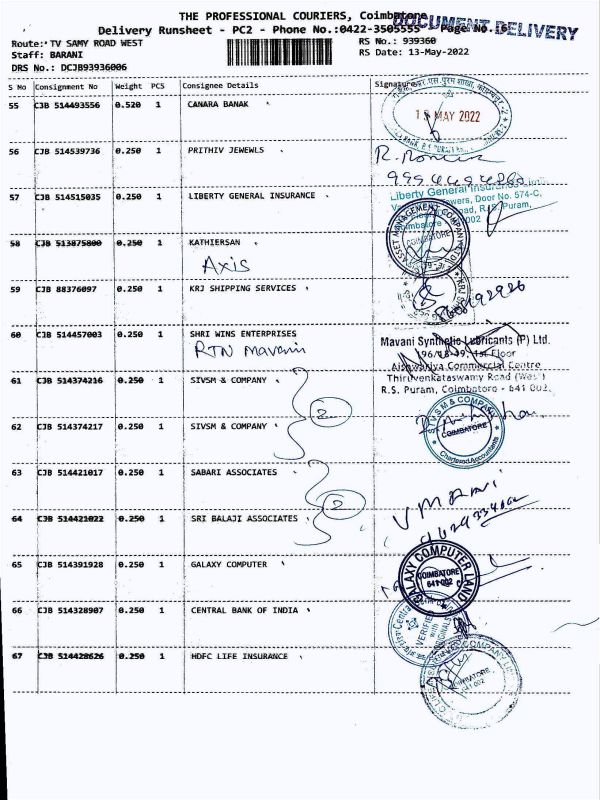 THE PROFESSIONAL COURIERS, Coimbatore
DOCUMENT DELIVERY
Delivery Runsheet - PC2 - Phone No.:0422-3505555 - Page No.:6
Route: TV SAMY ROAD WEST
RS No.: 939360
Staff: BARANI
RS Date: 13-May-2022
DRS No.: DCJB93936006
S No Consignment No Weight PCS Consignee Details Signature
55 CJB 514493556 0.520 1 CANARA BANAK
MAY 2022
56 CJB 514539736 0.250 1 PRITHIV JEWEWLS
57 CJB 514515035 0.250 1 LIBERTY GENERAL INSURANCE
Liberty General Insurance
Door No. 574-C,
Road, R.S. Puram,
Coimbatore
58 CJB 513875800 0.250 1 KATHIERSAN
AXIS
ASSET MANAGEMENT COMPANY LTD
COIMBATORE
59 CJB 88376097 0.250 1 KRJ SHIPPING SERVICES
60 CJB 514457003 0.250 1 SHRI WINS ENTERPRISES
RTN Mavani
Mavani Synthetic Lubricants (P) Ltd.
1st Floor
Aishwariya Commercial Centre
Thiruvenkataswamy Road (West)
R.S. Puram, Coimbatore - 641 002.
61 CJB 514374216 0.250 1 SIVSM & COMPANY
2
62 CJB 514374217 0.250 1 SIVSM & COMPANY
SIVSM & COMPANY
COIMBATORE
Chartered Accountants
63 CJB 514421017 0.250 1 SABARI ASSOCIATES
2
64 CJB 514421022 0.250 1 SRI BALAJI ASSOCIATES
65 CJB 514391928 0.250 1 GALAXY COMPUTER
GALAXY COMPUTER LAND
COIMBATORE
641 002
66 CJB 514328907 0.250 1 CENTRAL BANK OF INDIA
VERIFIED
with
67 CJB 514428626 0.250 1 HDFC LIFE INSURANCE
COIMBATORE
641 002